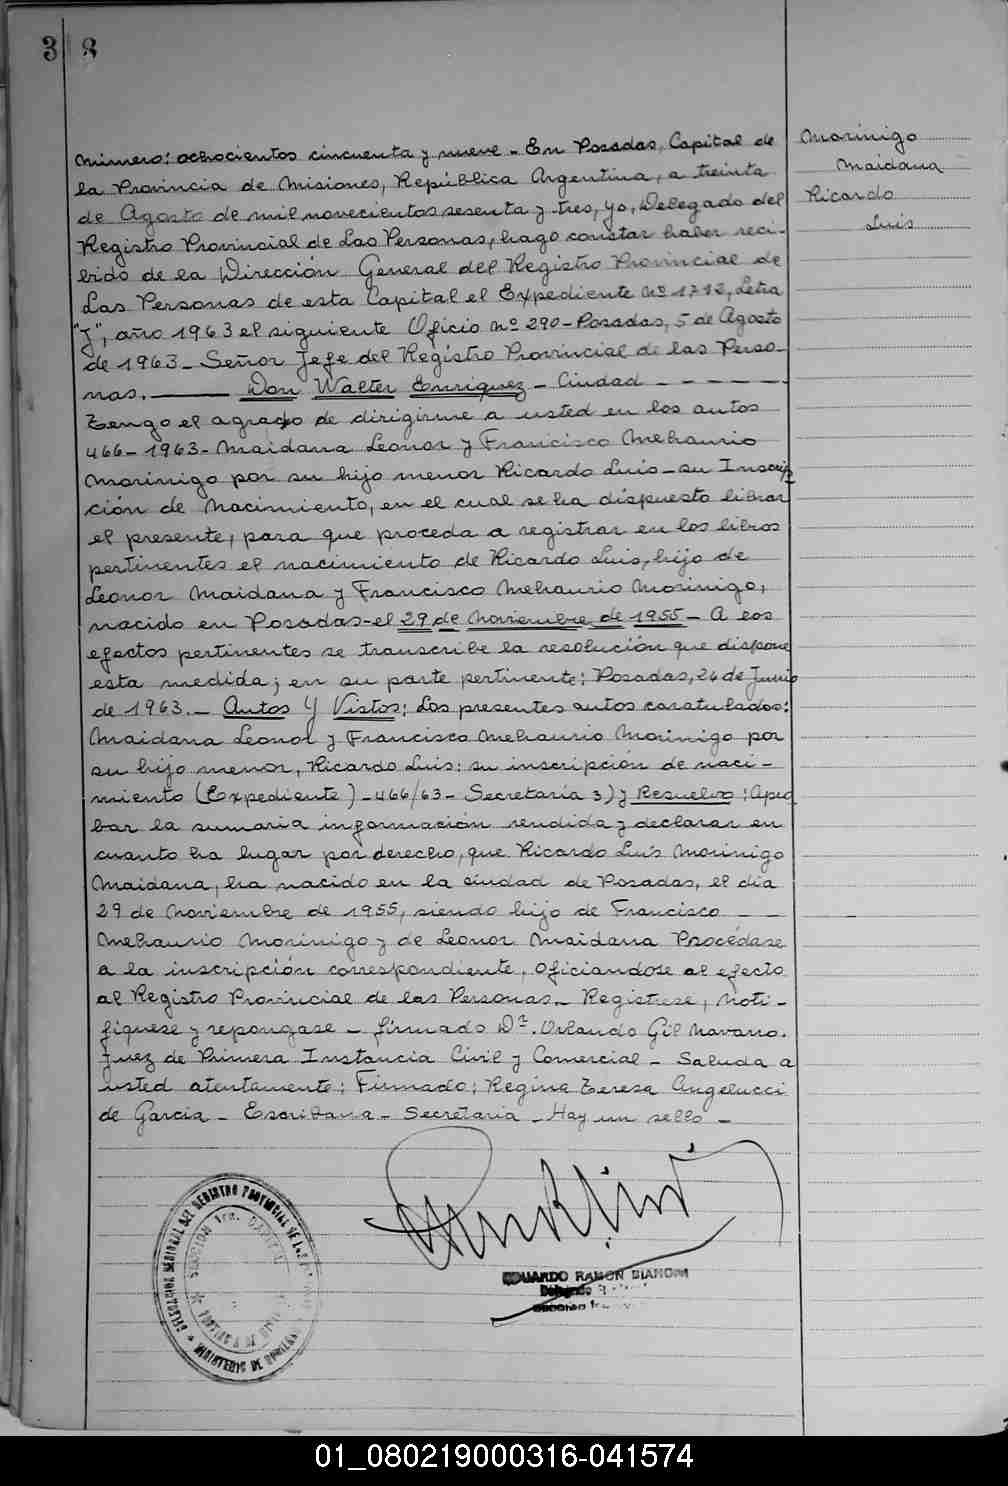 3 8
Morinigo
Maidana
Ricardo
Luis
Número: ochocientos cincuenta y nueve - En Posadas, Capital de
la Provincia de Misiones, República Argentina, a treinta
de Agosto de mil novecientos sesenta y tres, yo, Delegado del
Registro Provincial de Las Personas, hago constar haber reci-
bido de la Dirección General del Registro Provincial de
Las Personas de esta Capital el Expediente Nº 1712, Letra
"J", año 1963 el siguiente Oficio Nº 290 - Posadas, 5 de Agosto
de 1963 - Señor Jefe del Registro Provincial de las Perso-
nas. ——— Don Walter Enriquez - Ciudad - - - - - -
Tengo el agrado de dirigirme a usted en los autos
466-1963- Maidana Leonor y Francisco Mehaurio
Morinigo por su hijo menor Ricardo Luis - su Inscrip
ción de Nacimiento, en el cual se ha dispuesto librar
el presente, para que proceda a registrar en los libros
pertinentes el nacimiento de Ricardo Luis, hijo de
Leonor Maidana y Francisco Mehaurio Morinigo,
nacido en Posadas - el 29 de Noviembre de 1955 - A los
efectos pertinentes se transcribe la resolución que dispone
esta medida; en su parte pertinente: Posadas, 26 de Junio
de 1963. - Autos Y Vistos: Los presentes autos caratulados:
Maidana Leonor y Francisco Mehaurio Morinigo por
su hijo menor, Ricardo Luis: su inscripción de naci-
miento (Expediente) - 466/63 - Secretaría 3) y Resuelvo: Apro
bar la sumaria información rendida y declarar en
cuanto ha lugar por derecho, que Ricardo Luis Morinigo
Maidana, ha nacido en la ciudad de Posadas, el día
29 de Noviembre de 1955, siendo hijo de Francisco - -
Mehaurio Morinigo y de Leonor Maidana Procédase
a la inscripción correspondiente, oficiandose al efecto
al Registro Provincial de las Personas. - Registrese, Noti-
fiquese y repongase - firmado Dr. Orlando Gil Navarro.
Juez de Primera Instancia Civil y Comercial - Saluda a
usted atentamente: Firmado: Regina Teresa Angelucci
de García - Escribana - Secretaria - Hay un sello -
DELEGACION REGIONAL DEL REGISTRO PROVINCIAL DE LAS
SECCION 1ra. CAPITAL
MINISTERIO DE GOBIERNO
EDUARDO RAMON BIANCHI
Delegado
01_080219000316-041574